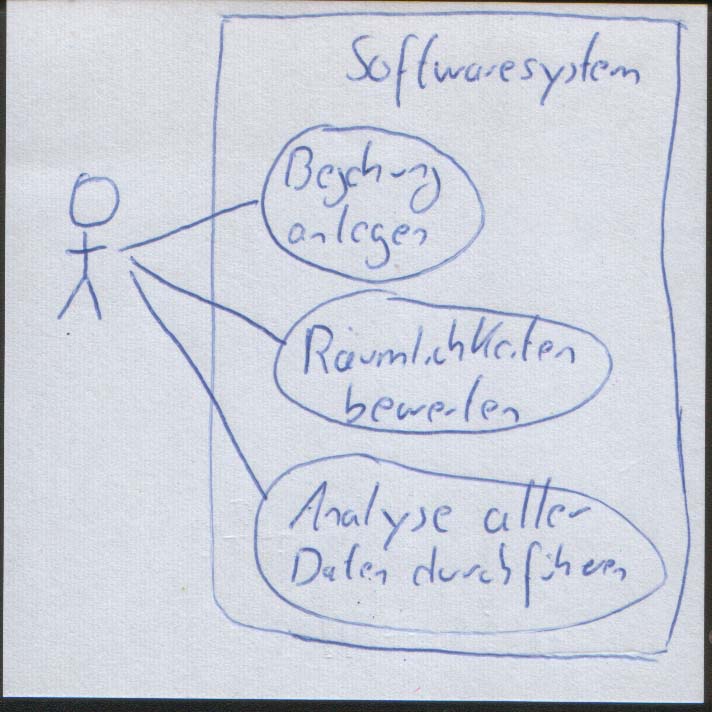 Softwaresystem
Begehung
anlegen
Räumlichkeiten
bewerten
Analyse aller
Daten durchführen